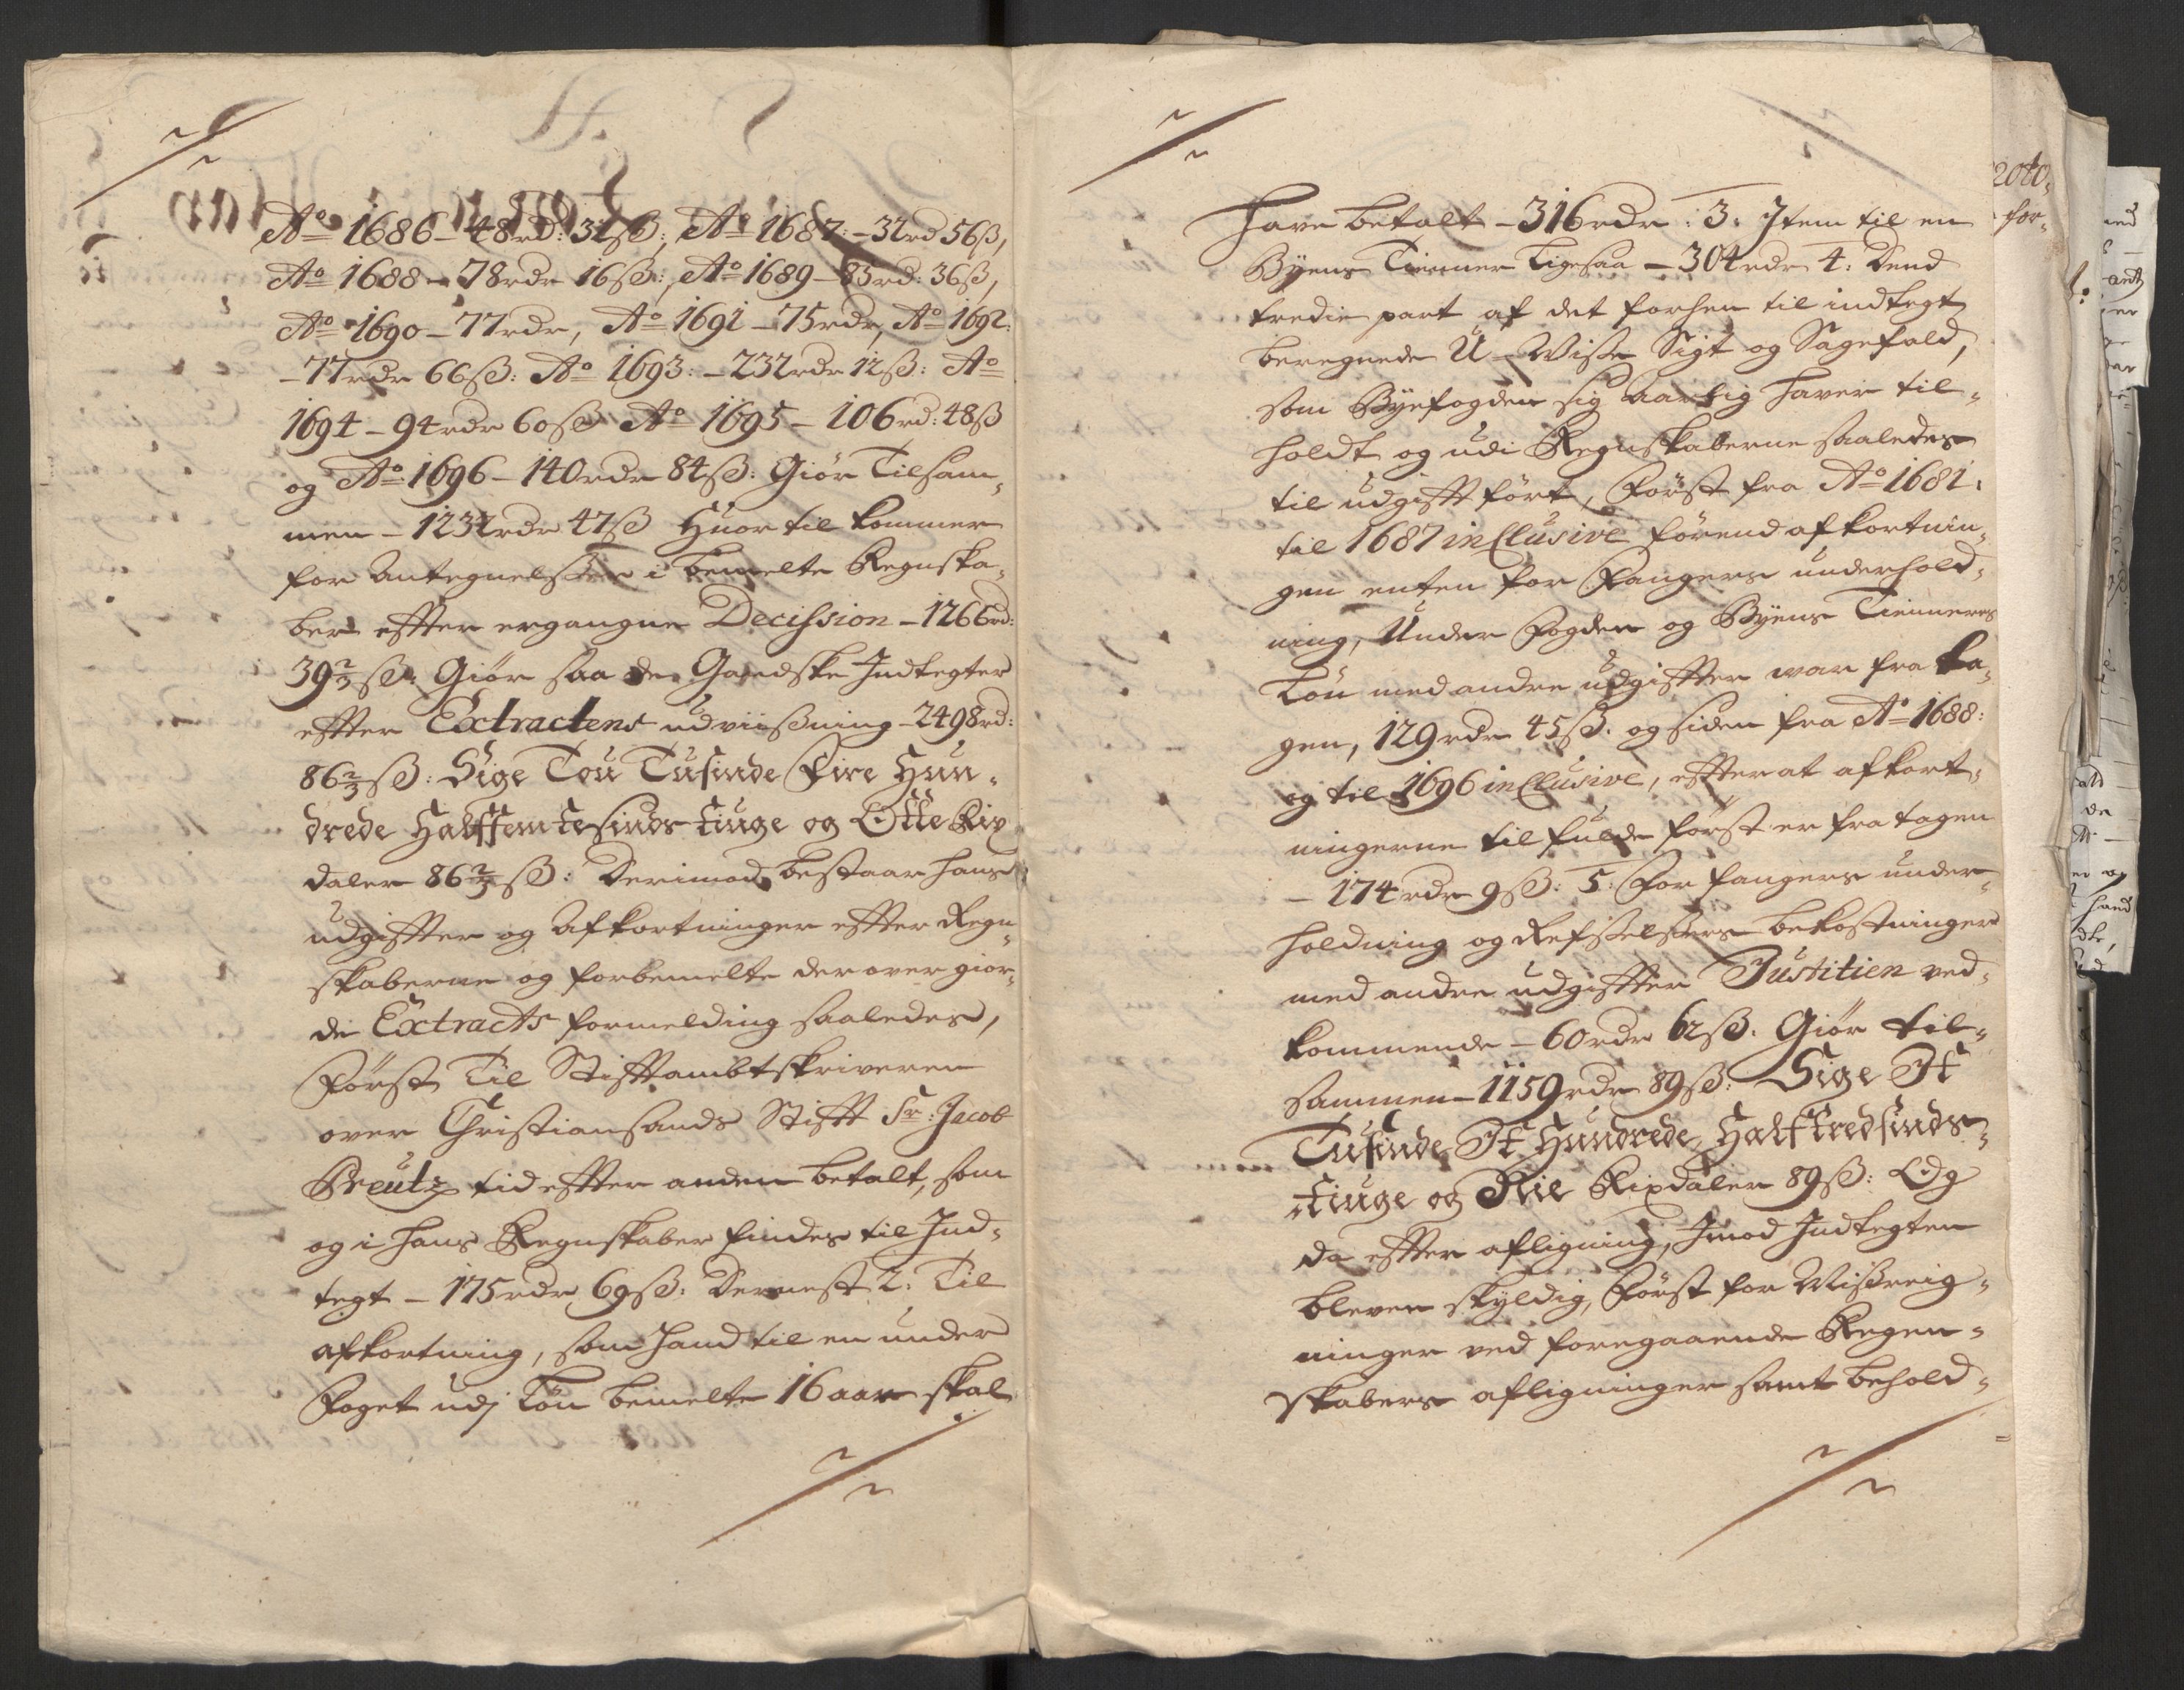 Ao 1686 – 48 rd: 32 ß:, Ao 1687: – 32 rd 56 ß,
Ao 1688 – 78 rdr 16 ß:, Ao 1689 – 85 rd: 36 ß,
Ao 1690 – 77 rdr, Ao 1691 – 75 rdr, Ao 1692:
– 77 rdr 66 ß: Ao 1693: – 232 rdr 12 ß: Ao
1694 – 94 rdr 60 ß Ao 1695 – 106 rd: 48 ß
og Ao 1696 – 140 rdr 84 ß: Giør Tilsam-
men – 1232 rdr 47 ß Huortil kommer
for Antegnelser i bemelte Regnska-
ber effter ergangne Decission – 1266 rd:
39 2/3 ß: Giør saa de Gandske Indtegter
effter Extractens udviißning – 2498 rd:
86 2/3 ß: Sige Tou Tusinde Fire Hun-
drede Halffemtesinds tiuge og Otte Rix
daler 86 2/3 ß: Derimod bestaar hans
udgiffter og Afkortninger effter Regn-
skaberne og forbemelte derover gior-
de Extracts formelding saaledes,
Først Til Stifftambtskriveren
over Christiansands Stifft Sr: Jacob
Preutz tid effter anden betalt, som
og i hans Regnskaber findes til Ind-
tegt – 175 rdr 69 ß: Dernest 2: Til
afkortning, som hand til en under
Foget udj Løn bemelte 16 aar skal
have betalt – 316 rdr: 3: Item til en
Byens Tienner Ligesaa – 304 rdr 4: Dend
tredie part af det forhen til indtegt
beregnede U-Visse Sigt og Sagefald,
som Byefogden sig aarlig haver til-
holdt og udi Regnskaberne saaledes
til udgifft ført, Først fra Ao 1681:
til 1687 inclusive førend afkortnin-
gen enten for Fangers underhold-
ning, Under Fogden og Byens Tienneres
Løn med andre udgiffter var fra ta-
gen, 129 rdr 45 ß. og siden fra Ao 1688:
og til 1696 inclusive, effter at afkort-
ningerne til fulde først er fra tagen
– 174 rdr 9 ß: 5: For fangers under-
holdning og Refselsers bekostninger
med andre udgiffter Justitien ved-
kommende – 60 rdr 62 ß. Giør til-
sammen – 1159 rdr 89 ß: Sige It
Tusinde It Hundrede Halftredsinds-
tiuge og Nie Rixdaler 89 ß: Og
da effter afligning, Imod Indtegten
bleven skyldig, Først for Misreig-
ninger ved foregaaende Regen-
skabers afligninger samt behold-